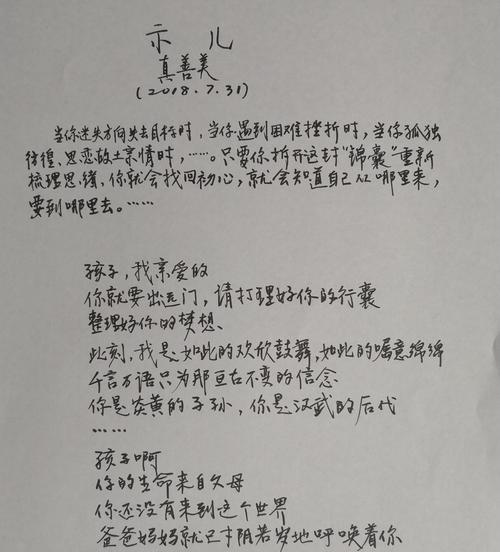 示儿
真善美
(2018.7.31)
当你迷失方向失去目标时，当你遇到困难挫折时，当你孤独
彷徨、思恋故土亲情时，……。只要你拆开这封“锦囊”重新
梳理思绪，你就会找回初心，就会知道自己从哪里来，
要到哪里去。……
孩子，我亲爱的
你就要出远门，请打理好你的行囊
整理好你的梦想.
此刻，我是如此的欢欣鼓舞，如此的嘱意绵绵
千言万语只为那亘古不变的信念
你是炎黄的子孙，你是汉武的后代
……
孩子啊
你的生命来自父母
你还没有来到这个世界
爸爸妈妈就已才阴若岁地呼唤着你